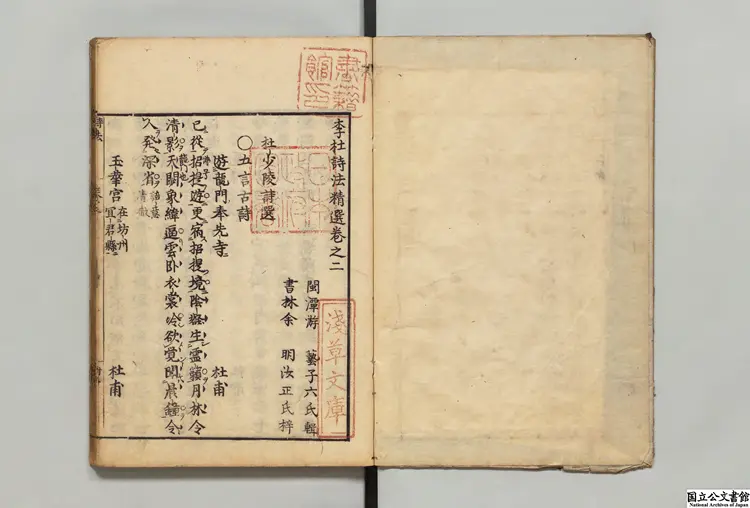 李杜詩法精選卷之二
閩潭游 藝子六氏輯
書林余 明汝正氏梓
杜少陵詩選
〇五言古詩
遊龍門奉先寺 杜甫
已從招提遊更宿招提境陰壑生靈籟月林
清影天闕象緯逼雲臥衣裳冷欲覺聞晨鐘令
人發深省
玉華宮 在坊州宜君縣 杜甫
淺草文庫
書籍館印
日本政府圖書
国立公文書館
National Archives of Japan